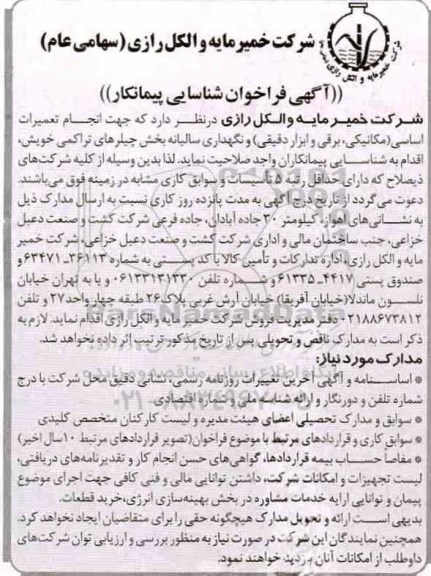 شرکت خمیرمایه و الکل رازی (سهامی عام)
شرکت خمیرمایه و الکل رازی
((آگهی فراخوان شناسایی پیمانکار))
شرکت خمیر مایه والکل رازی درنظر دارد که جهت انجام تعمیرات
اساسی(مکانیکی، برقی و ابزار دقیقی) و نگهداری سالیانه بخش چیلرهای تراکمی خویش،
اقدام به شناسایی پیمانکاران واجد صلاحیت نماید. لذا بدین وسیله از کلیه شرکت‌های
ذیصلاح که دارای حداقل رتبه ۵ تاسیسات و سوابق کاری مشابه در زمینه فوق می‌باشند
دعوت می‌گردد از تاریخ درج آگهی به مدت پانزده روز کاری نسبت به ارسال مدارک ذیل
به نشانی‌های اهواز: کیلومتر ۳۰ جاده آبادان، جاده فرعی شرکت کشت و صنعت دعبل
خزاعی، جنب ساختمان مالی و اداری شرکت کشت و صنعت دعبل خزاعی، شرکت خمیر
مایه و الکل رازی، اداره تدارکات و تأمین کالا با کد پستی به شماره ۳۶۱۱۳-۶۳۴۷۱ و
صندوق پستی ۴۴۱۷-۶۱۳۳۵ و شماره تلفن ۰۶۱۳۳۱۳۱۳۳۰ و یا به تهران خیابان
نلسون ماندلا(خیابان آفریقا) خیابان آرش غربی پلاک ۲۶ طبقه چهار واحد ۲۷ و تلفن
۰۲۱۸۸۶۷۳۸۱۲ دفتر مدیریت فروش شرکت خمیر مایه و الکل رازی اقدام نماید. لازم به
ذکر است به مدارک ناقص و تحویلی پس از تاریخ مذکور ترتیب اثر داده نخواهد شد.
مدارک مورد نیاز:
* اساسنامه و آگهی آخرین تغییرات روزنامه رسمی، نشانی دقیق محل شرکت با درج
شماره تلفن و دورنگار و ارائه شناسه ملی و کد اقتصادی
* سوابق و مدارک تحصیلی اعضای هیئت مدیره و لیست کارکنان متخصص کلیدی
* سوابق کاری و قراردادهای مرتبط با موضوع فراخوان(تصویر قراردادهای مرتبط ۱۰سال اخیر)
* مفاصا حساب بیمه قراردادها، گواهی‌های حسن انجام کار و تقدیرنامه‌های دریافتی،
لیست تجهیزات و امکانات شرکت، داشتن توانایی مالی و فنی کافی جهت اجرای موضوع
پیمان و توانایی ارایه خدمات مشاوره در بخش بهینه‌سازی انرژی، خرید قطعات.
بدیهی است ارائه و تحویل مدارک هیچگونه حقی را برای متقاضیان ایجاد نخواهد کرد.
همچنین نمایندگان این شرکت در صورت نیاز به منظور بررسی و ارزیابی توان شرکت‌های
داوطلب از امکانات آنان بازدید خواهند نمود.